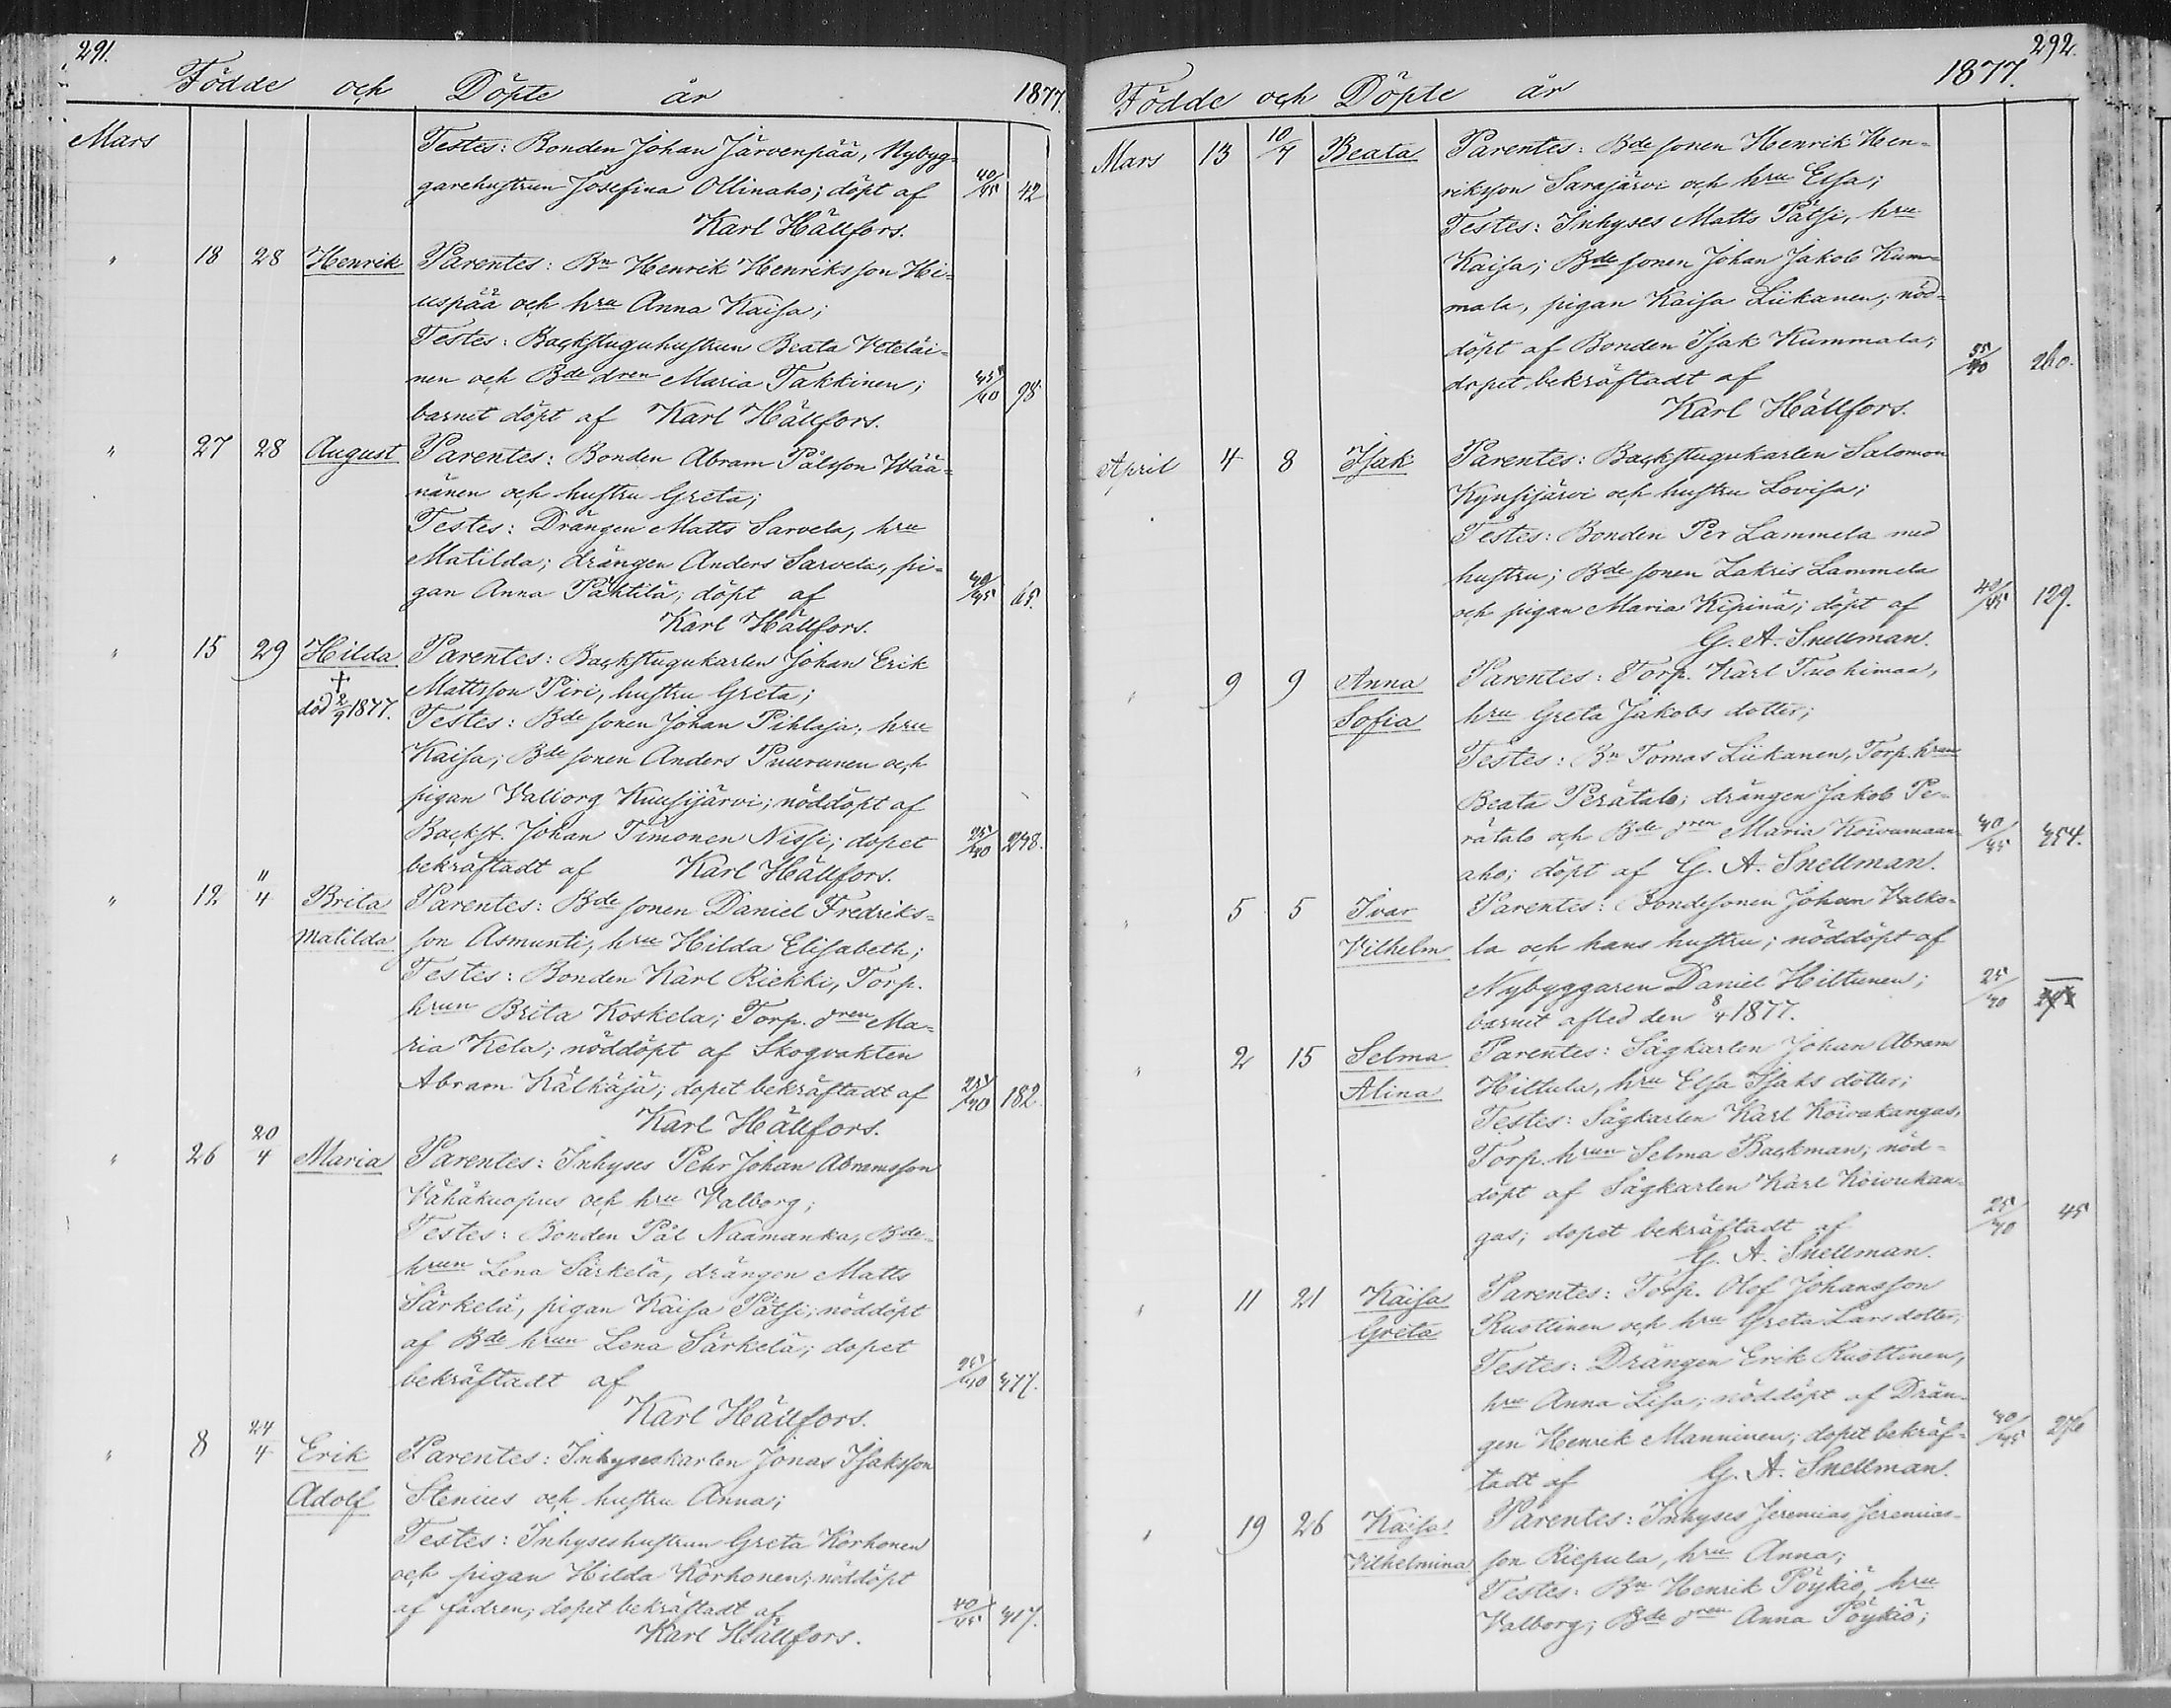 291.
Födde och Döpte år 1877.
Mars
Testes: Bonden Johan Järvenpää, Nybyg-
garehustrun Josefina Ollinaho; döpt af 40/45 42
Karl Hällfors.
" 18 28 Henrik Parentes: Bn Henrik Henriksson Hi-
uspää och hru Anna Kaisa;
Testes: Backstuguhustrun Beata Veteläi-
nen och Bde dren Maria Takkinen; 98
barnet döpt af Karl Hällfors.
" 27 28 August Parentes: Bonden Abram Pålsson Wää-
nänen och hustru Greta;
Testes: Drängen Matts Sarvela, hru
Matilda; drängen Anders Sarvela, pi-
gan Anna Pahtila; döpt af 40/45 65.
Karl Hällfors.
" 15 29 Hilda Parentes: Backstugukarlen Johan Erik
† Mattsson Piri, hustru Greta;
död 2/9 1877. Testes: Bde sonen Johan Pihlaja, hru
Kaisa; Bde sonen Anders Puurunen och
pigan Valborg Kuusijärvi; nöddöpt af
Backst. Johan Timonen Nissi; dopet 248.
bekräftadt af Karl Hällfors.
" 12 11/4 Brita Parentes: Bde sonen Daniel Fredriks-
Matilda son Asmunti, hru Hilda Elisabeth;
Testes: Bonden Karl Riekki, Torp.
hrun Brita Koskela; Torp. dren Ma-
ria Kela; nöddöpt af Skogvakten
Abram Kälkäjä; dopet bekräftadt af 182.
Karl Hällfors.
" 26 20/4 Maria Parentes: Inhyses Pehr Johan Abramsson
Vähäkuopus och hru Valborg;
Testes: Bonden Pål Naamanka, Bde-
hrun Lena Särkelä, drängen Matts
Särkelä, pigan Kaisa Pätsi; nöddöpt
af Bde hrun Lena Särkelä; dopet
bekräftadt af
Karl Hällfors.
" 8 24/4 Erik Parentes: Inhyseskarlen Jonas Isaksson
Adolf Stenius och hustru Anna;
Testes: Inhyseshustrun Greta Korhonen
och pigan Hilda Korhonen; nöddöpt
af fadren; dopet bekräftadt af 40/45
Karl Hällfors.
292.
Födde och Döpte år 1877.
Mars 13 10/4 Beata Parentes: Bde sonen Henrik Hen-
riksson Sarajärvi och hru Elsa;
Testes: Inhyses Matts Pätsi, hru
Kaisa; Bde sonen Johan Jakob Kum-
mala, pigan Kaisa Liikanen; nöd-
döpt af Bonden Isak Kummala;
dopet bekräftadt af 260.
Karl Hällfors.
April 4 8 Isak Parentes: Backstugukarlen Salomon
Kynsijärvi och hustru Lovisa;
Testes: Bonden Per Lammela med
hustru; Bde sonen Zakris Lammela
och pigan Maria Kipinä; döpt af 40/45 129.
G. A. Snellman.
" 9 9 Anna Parentes: Torp. Karl Tuohimaa,
Sofia hru Greta Jakobs dotter;
Testes: Bn Tomas Liikanen, Torp. hrun
Beata Perätalo; drängen Jakob Pe-
rätalo och Bde dren Maria Koivumaan-
aho; döpt af G. A. Snellman. 40/45 454.
" 5 5 Ivar Parentes: Bondesonen Johan Valko-
Vilhelm la och hans hustru; nöddöpt af
Nybyggaren Daniel Hiltunen; 25/40
barnet afled den 8/4 1877.
" 2 15 Selma Parentes: Sågkarlen Johan Abram
Alina Hiltula, hru Elsa Isaks dotter;
Testes: Sågkarlen Karl Koivukangas,
Torp. hrun Selma Backman; nöd-
döpt af Sågkarlen Karl Koivukan-
gas; dopet bekräftadt af 25/40 45
G. A. Snellman.
" 11 21 Kaisa Parentes: Torp. Olof Johansson
Greta Ruottinen och hru Greta Larsdotter;
Testes: Drängen Erik Ruottinen,
hru Anna Lisa; nöddöpt af Drän-
gen Henrik Manninen; dopet bekräf- 40/45
tadt af G. A. Snellman.
" 19 26 Kaisa Parentes: Inhyses Jeremias Jeremias-
Vilhelmina son Riepula, hru Anna;
Testes: Bn Henrik Pöykiö, hru
Valborg; Bde dren Anna Pöykiö;